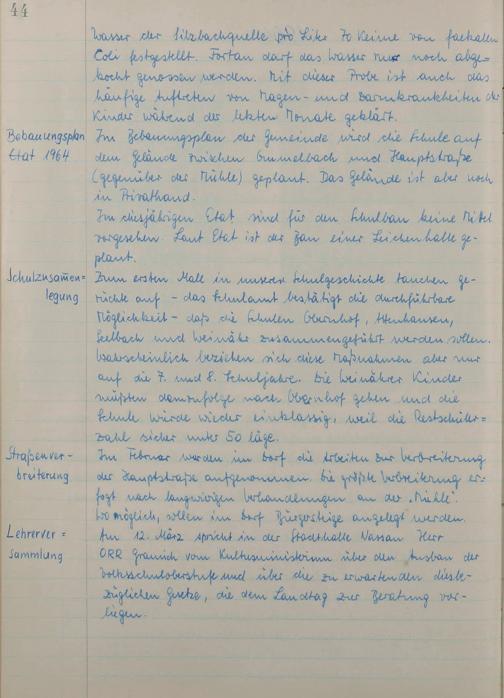 44
Wasser der Silzbachquelle pro Liter 70 Keime von faekalen
Coli festgestellt. Fortan darf das Wasser nur noch abge-
kocht genossen werden. Mit dieser Probe ist auch das
häufige Auftreten von Magen- und Darmkrankheiten der
Kinder während der letzten Monate geklärt.
Bebauungsplan Im Bebauungsplan der Gemeinde wird die Schule auf
Etat 1964 dem Gelände zwischen Gemmelbach und Hauptstraße
(gegenüber der Mühle) geplant. Das Gelände ist aber noch
in Privathand.
Im diesjährigen Etat sind für den Schulbau keine Mittel
vorgesehen. Laut Etat ist der Bau einer Leichenhalle ge-
plant.
Schulzusam̄en= Zum ersten Male in unserer Schulgeschichte tauchen Ge-
legung rüchte auf - das Schulamt bestätigt die durchführbare
Möglichkeit - daß die Schulen Obernhof, Attenhausen,
Seelbach und Weinähr zusammengeführt werden sollen.
Wahrscheinlich beziehen sich diese Maßnahmen aber nur
auf die 7. und 8. Schuljahre. Die Weinährer Kinder
müßten demzufolge nach Obernhof gehen und die
Schule würde wieder einklassig, weil die Restschüler=
zahl sicher unter 50 läge.
Straßenver- Im Februar werden im Dorf die Arbeiten zur Verbreiterung
breiterung der Hauptstraße aufgenommen. Die größte Verbreiterung er-
folgt nach langwierigen Verhandlungen an der "Mühle".
Wo möglich, sollen im Dorf Bürgersteige angelegt werden.
Lehrerver= Am 12. März spricht in der Stadthalle Nassau Herr
sammlung ORR vom Kultusministerium über den Ausbau der
Volksschuloberstufe und über die zu erwartenden dies-
züglichen Gesetze, die dem Landtag zur Beratung vor-
liegen.